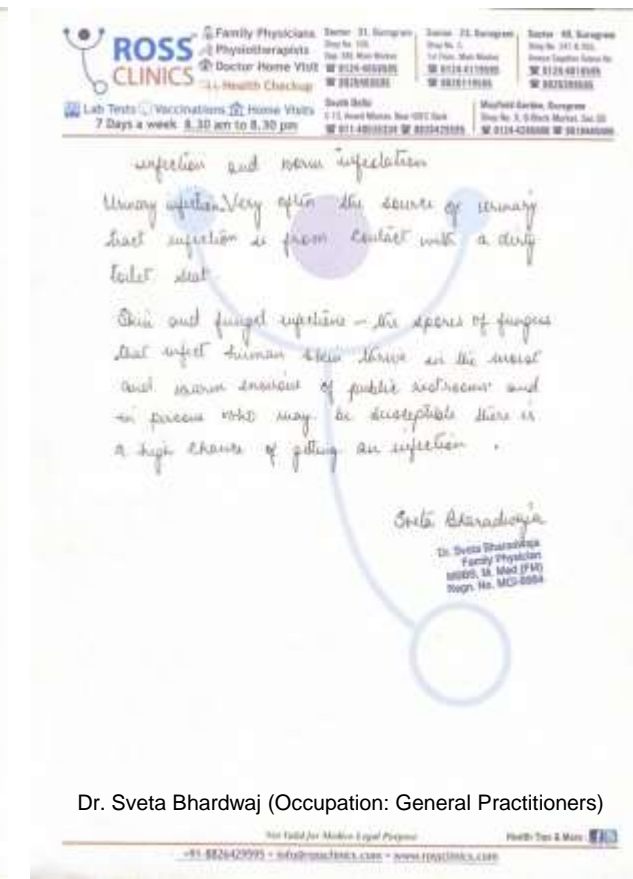 ROSS
CLINICS
Family Physicians
Physiotherapists
Doctor Home Visit
Health Checkup
Lab Tests Vaccinations Home Visits
7 Days a week 8.30 am to 8.30 pm
Sector 31, Gurugram
Sector 23, Gurugram
South Delhi
Mayfield Garden, Gurugram
infection and worm infestation
Urinary infection. Very often the source of urinary
tract infection is from contact with a dirty
toilet seat.
Skin and fungal infections - the spores of fungus
that infect human skin thrive in the moist
and warm of public restrooms and
in persons who may be susceptible there is
a high chance of getting an infection.
Sveta Bharadwaja
Dr. Sveta Bharadwaja
Family Physician
MBBS, M. Med (FM)
Regn. No.
Dr. Sveta Bhardwaj (Occupation: General Practitioners)
Not Valid for Medico Legal Purpose
Health Tips & More :
+91-8826429995 • info@rossclinics.com • www.rossclinics.com